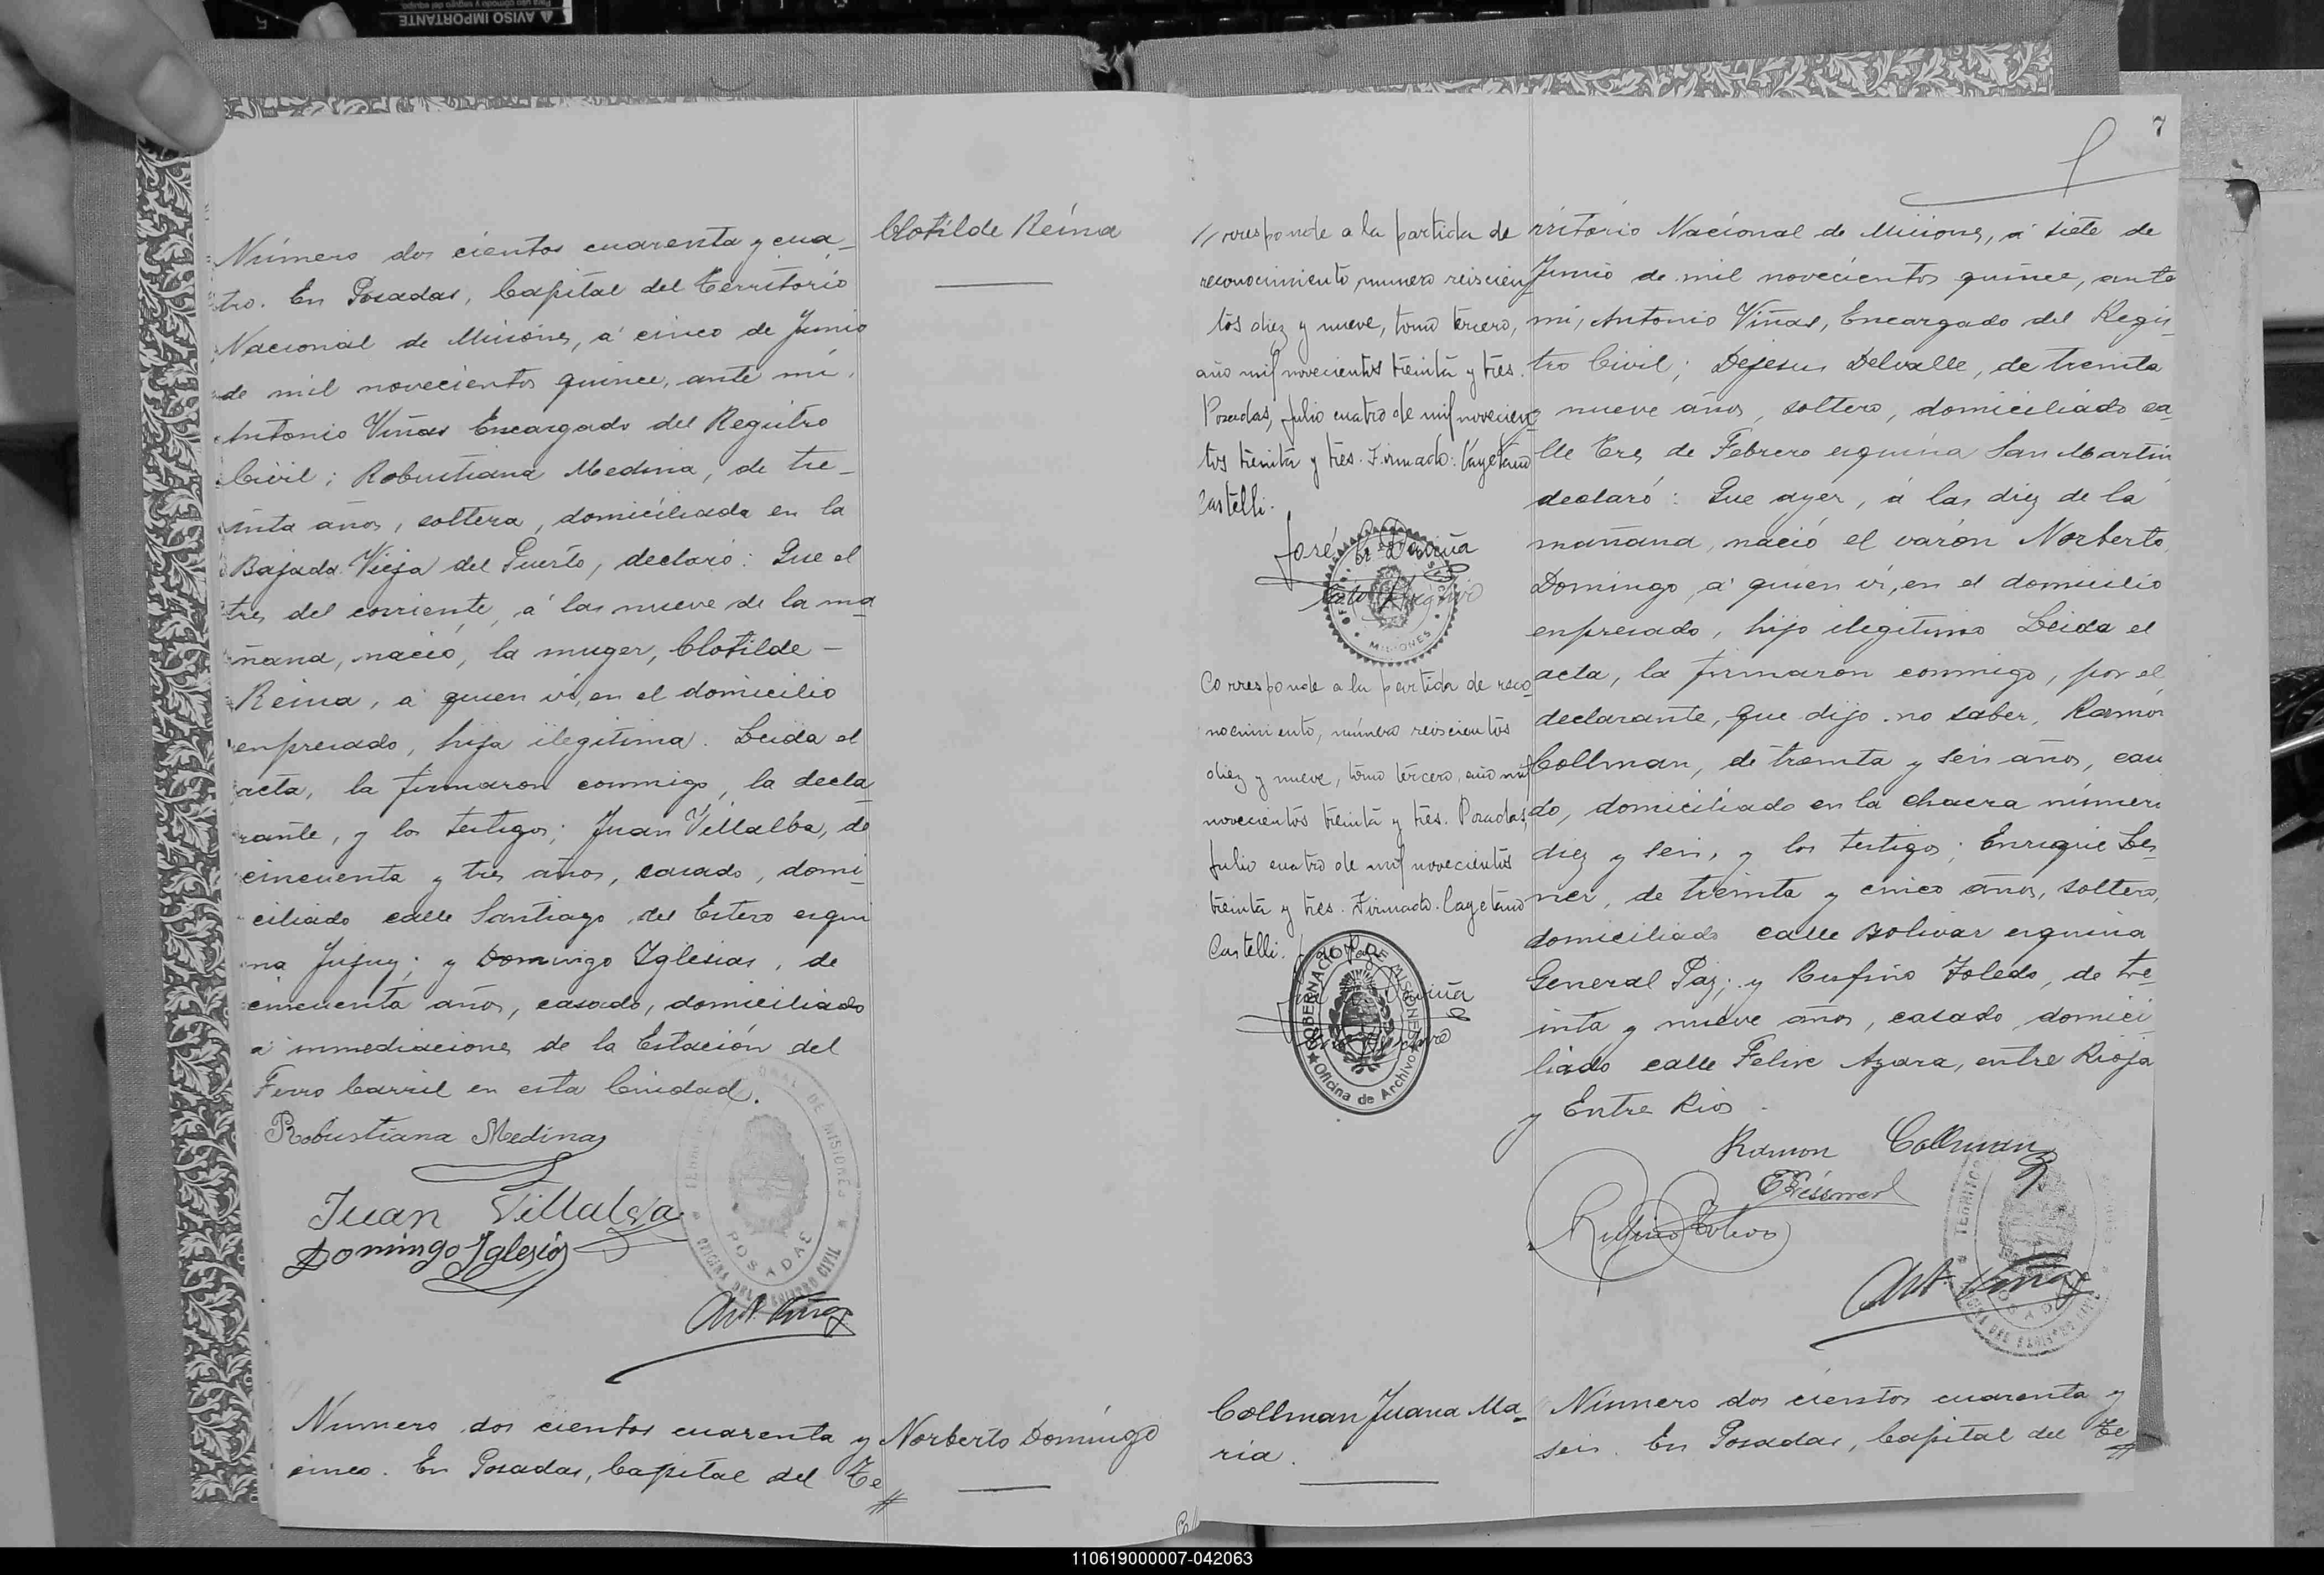 AVISO IMPORTANTE
Clotilde Reina
Número dos cientos cuarenta y cua-
tro. En Posadas, Capital del Territorio
Nacional de Misiones, á cinco de Junio
de mil novecientos quince, ante mí,
Antonio Viñas Encargado del Registro
Civil; Robustiana Medina, de tre-
inta años, soltera, domiciliada en la
Bajada Vieja del Puerto, declaró: Que el
tres del corriente, á las nueve de la ma
ñana, nació, la muger, Clotilde -
Reina, á quien ví, en el domicilio
enpresado, hija ilegitima. Leida el
acta, la firmaron conmigo, la decla
rante, y los testigos; Juan Villalba, de
cincuenta y tres años, casado, domi-
ciliado calle Santiago del Estero esqui
na Jujuy; y Domingo Iglesias, de
cincuenta años, casado, domiciliado
á inmediaciones de la Estación del
Ferro Carril en esta Ciudad.
Robustiana Medina
Juan Villalva
Domingo Iglesias
Ant. Viñas
DE MISIONES
POSADAS
OFICINA DEL REGISTRO CIVIL
Numero dos cientos cuarenta y
cinco. En Posadas, Capital del Te
Norberto Domingo
7
// rresponde a la partida de
reconocimiento, numero seiscien
tos diez y nueve, tomo tercero,
año mil novecientos treinta y tres.
Posadas, julio cuatro de mil novecien
tos treinta y tres. Firmado: Cayetano
Castelli.
José
MISIONES
Corresponde a la partida de reco
nocimiento, número seiscientos
diez y nueve, tomo tercero, año mil
novecientos treinta y tres. Posadas,
julio cuatro de mil novecientos
treinta y tres. Firmado. Cayetano
Castelli.
GOBERNACION DE MISIONES
Oficina de Archivo
rritorio Nacional de Misiones, á siete de
Junio de mil novecientos quince, ante
mí, Antonio Viñas, Encargado del Regis-
tro Civil; Dejesus Delvalle, de treinta
y nueve años, soltero, domiciliado ca
lle Tres de Febrero esquina San Martín
declaró: Que ayer, á las diez de la
mañana, nació el varón Norberto
Domingo, á quien ví, en el domicilio
enpresado, hijo ilegitimo Leida el
acta, la firmaron conmigo, por el
declarante, que dijo no saber, Ramón
Collman, de treinta y seis años, casa
do, domiciliado en la chacra número
diez y seis, y los testigos; Enrique Les
ner, de treinta y cinco años, soltero,
domiciliado calle Bolivar esquina
General Paz; y Rufino Toledo, de tre
inta y nueve años, casado domici
liado calle Felix Azara, entre Rioja
y Entre Rios.
Ramon Collman
Rufino Toledo
Ant. Viñas
Collman Juana Ma-
ria.
Número dos cientos cuarenta y
seis. En Posadas, Capital del Te
110619000007-042063